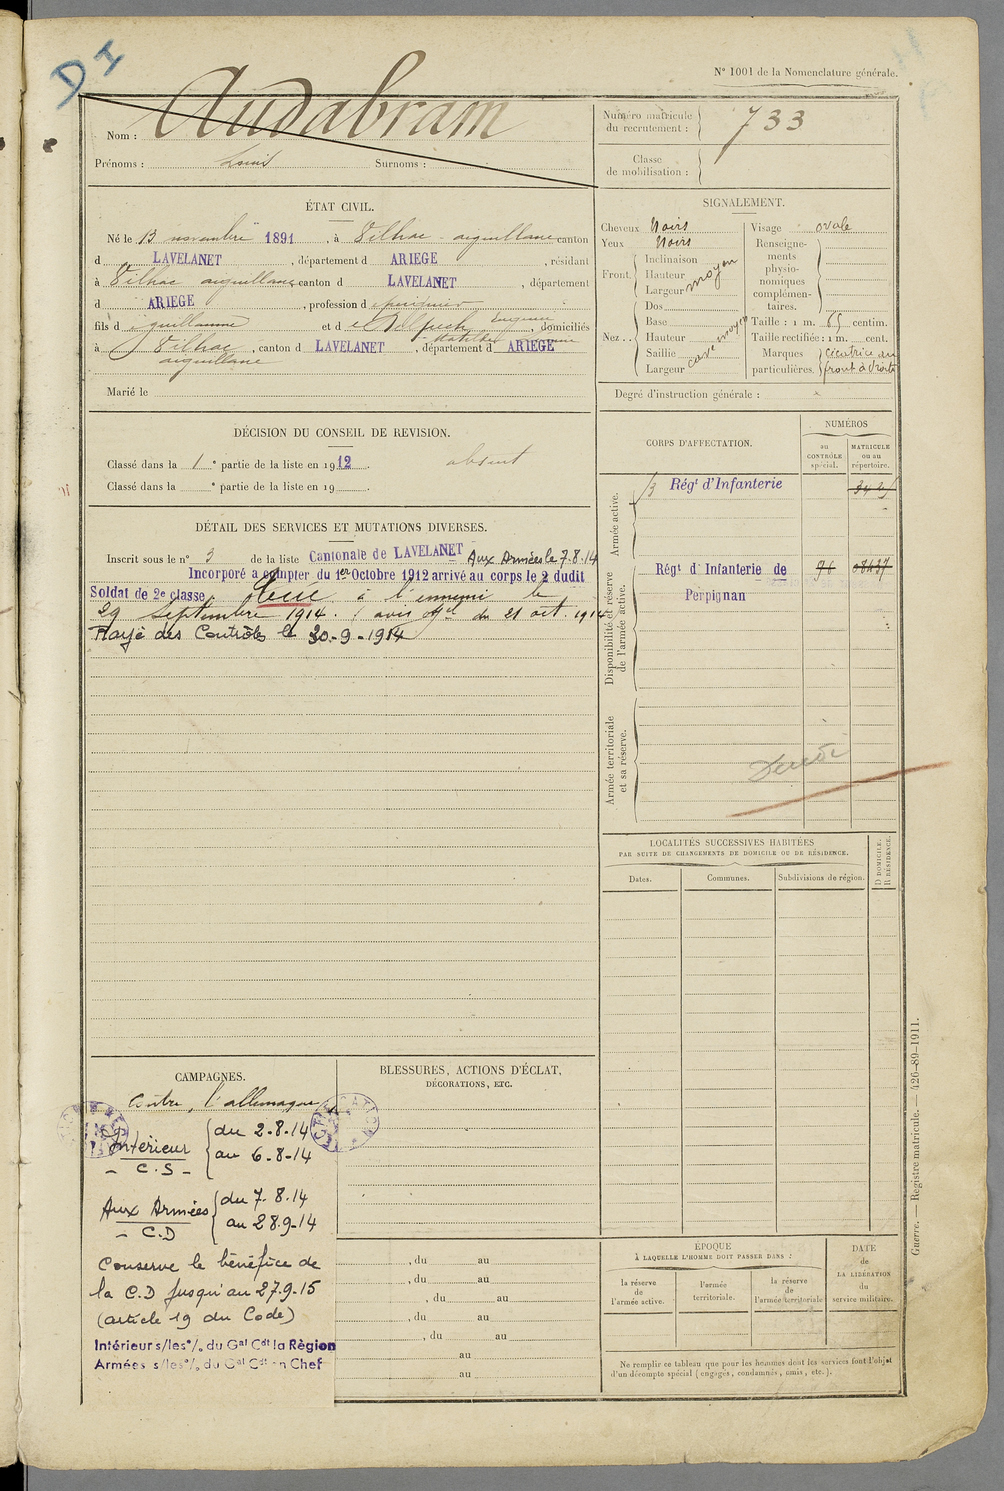 DI
N° 1001 de la Nomenclature générale.
Nom : Audabram
Prénoms : Louis Surnoms :
Numéro matricule du recrutement : 733
Classe de mobilisation :
ÉTAT CIVIL.
Né le 13 novembre 1891, à Vilhac-aiguillanc canton
d LAVELANET, département d ARIEGE, résidant
à Vilhac aiguillanc canton d LAVELANET, département
d ARIEGE, profession d
fils d guillaume et d Delpech Eugénie, domiciliés
à Vilhac aiguillanc, canton d LAVELANET, département d ARIEGE
Marié le
SIGNALEMENT.
Cheveux Noirs
Yeux Noirs
Front. Inclinaison
Hauteur
Largeur
moyen
Nez .. Dos
Base
Hauteur
Saillie
Largeur
cave moyen
Visage ovale
Renseignements physionomiques complémentaires.
Taille : 1 m. 65 centim.
Taille rectifiée : 1 m. cent.
Marques particulières. cicatrice au front à droite
Degré d'instruction générale :
DÉCISION DU CONSEIL DE REVISION.
Classé dans la 1e partie de la liste en 1912. absent
Classé dans la e partie de la liste en 19 .
DÉTAIL DES SERVICES ET MUTATIONS DIVERSES.
Inscrit sous le n° 3 de la liste Cantonale de LAVELANET Aux Armées le 7.8.14
Incorporé a compter du 1er Octobre 1912 arrivé au corps le 2 dudit
Soldat de 2e classe Tué à l'ennemi le
29 Septembre 1914. avis du 21 oct. 1914
Rayé des Contrôles le 30-9-1914
CORPS D'AFFECTATION.
NUMÉROS
au CONTRÔLE spécial.
MATRICULE ou au répertoire.
Armée active.
Régt d'Infanterie
Disponibilité et réserve de l'armée active.
Régt d'Infanterie de
Perpignan
Armée territoriale et sa réserve.
LOCALITÉS SUCCESSIVES HABITÉES
PAR SUITE DE CHANGEMENTS DE DOMICILE OU DE RÉSIDENCE.
Dates. Communes. Subdivisions de région.
D DOMICILE. R RÉSIDENCE.
CAMPAGNES.
Contre l'allemagne
Intérieur
- C.S -
du 2-8-14
au 6-8-14
Aux Armées
- C.D
du 7.8.14
au 28.9-14
Conserve le bénéfice de
la C.D jusqu'au 27.9.15
(article 19 du Code)
Intérieur s/les°/. du Gal Cdt la Région
Armées s/les°/. du Gal Cdt en Chef
BLESSURES, ACTIONS D'ÉCLAT,
DÉCORATIONS, ETC.
, du au
, du au
, du au
, du au
, du au
au
au
ÉPOQUE
À LAQUELLE L'HOMME DOIT PASSER DANS :
la réserve de l'armée active.
l'armée territoriale.
la réserve de l'armée territoriale
DATE
de
LA LIBÉRATION
du
service militaire.
Ne remplir ce tableau que pour les hommes dont les services font l'objet
d'un décompte spécial (engagés, condamnés, omis, etc.).
Guerre. — Registre matricule. — 426-89-1911.